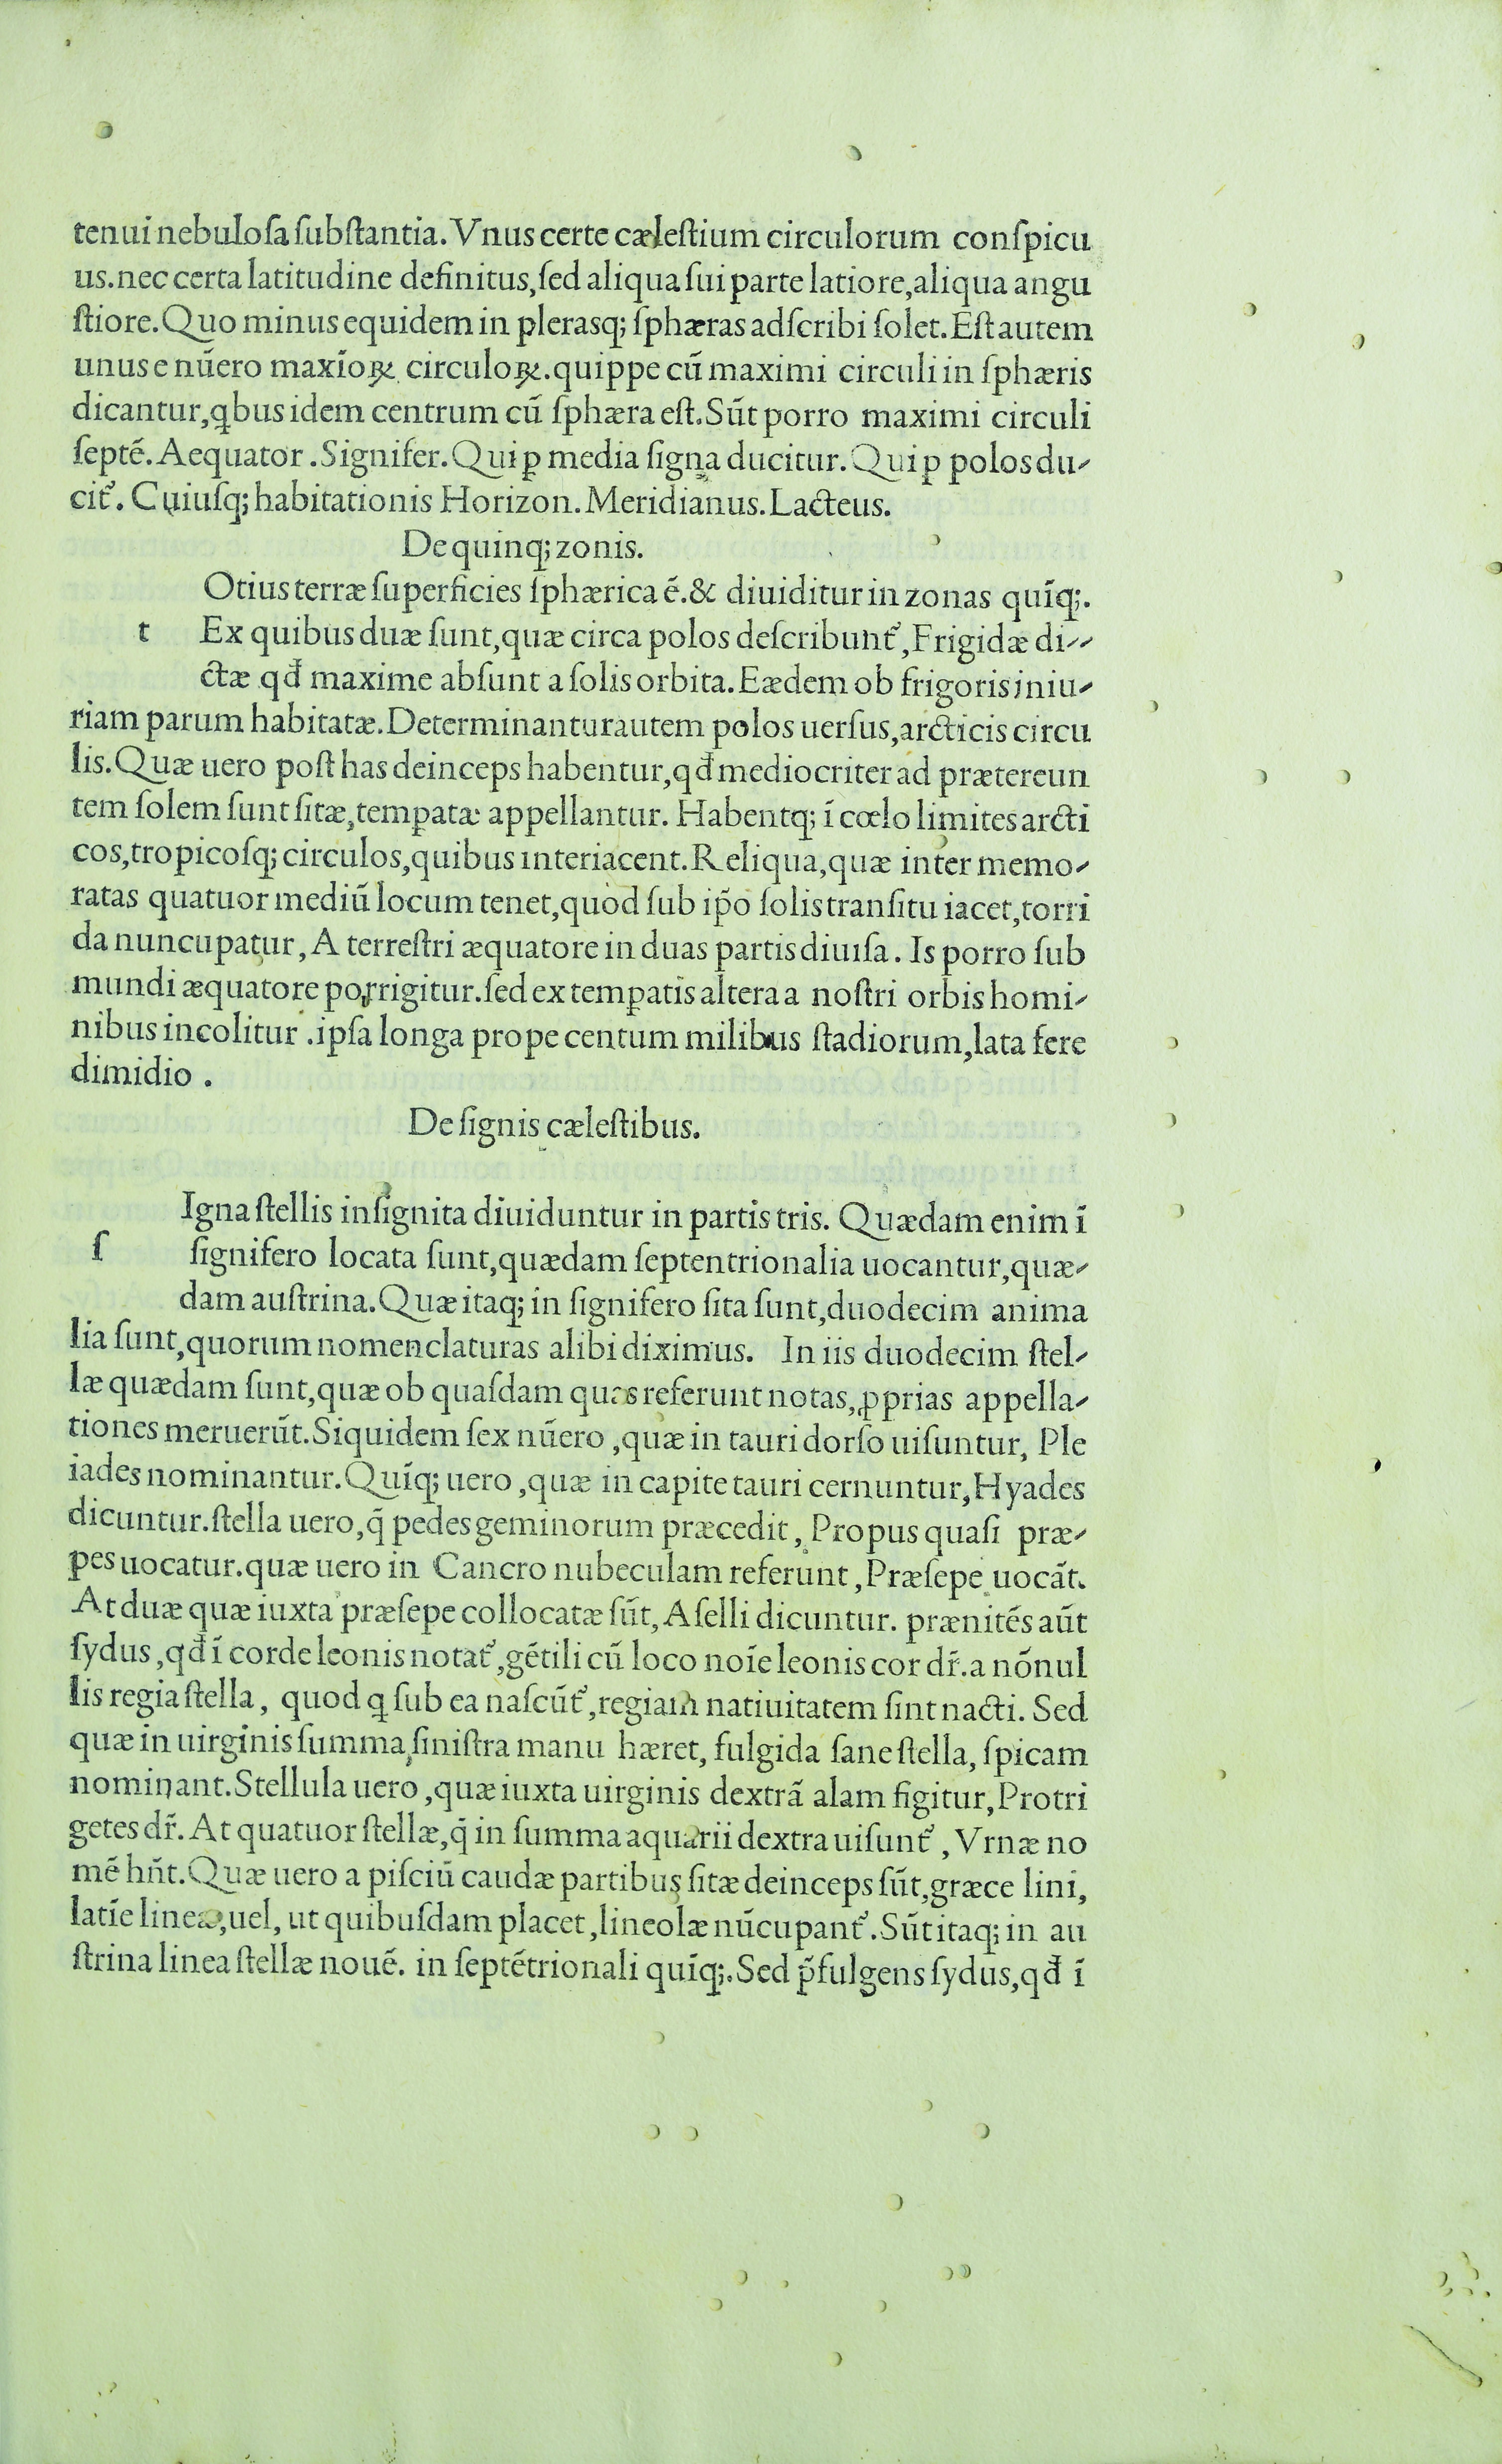 tenui nebuloſa ſubſtantia. Vnus certe cæleſtium circulorum conſpicu
us. nec certa latitudine definitus, ſed aliqua ſui parte latiore, aliqua angu
ſtiore. Quo minus equidem in plerasq; ſphæras adſcribi ſolet. Eſt autem
unus e nūero maxīoꝝ circuloꝝ. quippe cū maximi circuli in ſphæris
dicantur, qbus idem centrum cū ſphæra eſt. Sūt porro maximi circuli
ſeptē. Aequator. Signifer. Qui ꝑ media ſigna ducitur. Qui ꝑ polos du-
cit᷒. Cuiuſq; habitationis Horizon. Meridianus. Lacteus.
De quinq; zonis.
Otius terræ ſuperficies ſphærica ē. & diuiditur in zonas quīq;.
t Ex quibus duæ ſunt, quæ circa polos deſcribunt᷒, Frigidæ di--
ctæ qđ maxime abſunt a ſolis orbita. Eædem ob frigoris iniu-
riam parum habitatæ. Determinantur autem polos uerſus, arcticis circu
lis. Quæ uero poſt has deinceps habentur, qđ mediocriter ad prætereun
tem ſolem ſunt ſitæ, temꝑatæ appellantur. Habentq; ī cœlo limites arcti
cos, tropicoſq; circulos, quibus interiacent. Reliqua, quæ inter memo-
ratas quatuor mediū locum tenet, quod ſub ip̄o ſolis tranſitu iacet, torri
da nuncupatur, A terreſtri æquatore in duas partis diuiſa. Is porro ſub
mundi æquatore porrigitur. ſed ex temꝑatis altera a noſtri orbis homi-
nibus incolitur. ipſa longa prope centum milibus ſtadiorum, lata fere
dimidio.
De ſignis cæleſtibus.
Igna ſtellis inſignita diuiduntur in partis tris. Quædam enim ī
ſ ſignifero locata ſunt, quædam ſeptentrionalia uocantur, quæ-
dam auſtrina. Quæ itaq; in ſignifero ſita ſunt, duodecim anima
lia ſunt, quorum nomenclaturas alibi diximus. In iis duodecim ſtel-
læ quædam ſunt, quæ ob quaſdam quas referunt notas, ꝓprias appella-
tiones meruerūt. Siquidem ſex nūero, quæ in tauri dorſo uiſuntur, Ple
iades nominantur. Quīq; uero, quæ in capite tauri cernuntur, Hyades
dicuntur. ſtella uero, q̄ pedes geminorum præcedit, Propus quaſi præ-
pes uocatur. quæ uero in Cancro nubeculam referunt, Præſepe uocāt.
At duæ quæ iuxta præſepe collocatæ ſūt, Aſelli dicuntur. prænitēs aūt
ſydus, qđ ī corde leonis notat᷒, gētili cū loco noīe leonis cor dr̄. a nōnul
lis regia ſtella, quod q ſub ea naſcūt᷒, regiam natiuitatem ſint nacti. Sed
quæ in uirginis ſumma ſiniſtra manu hæret, fulgida ſane ſtella, ſpicam
nominant. Stellula uero, quæ iuxta uirginis dextrā alam figitur, Protri
getes dr̄. At quatuor ſtellæ, q̄ in ſumma aquarii dextra uiſunt᷒, Vrnæ no
mē hn̄t. Quæ uero a piſciū caudæ partibus ſitæ deinceps ſūt, græce lini,
latīe lineæ, uel, ut quibuſdam placet, lineolæ nūcupant᷒. Sūt itaq; in au
ſtrina linea ſtellæ nouē. in ſeptētrionali quīq;. Sed p̄fulgens ſydus, qđ ī